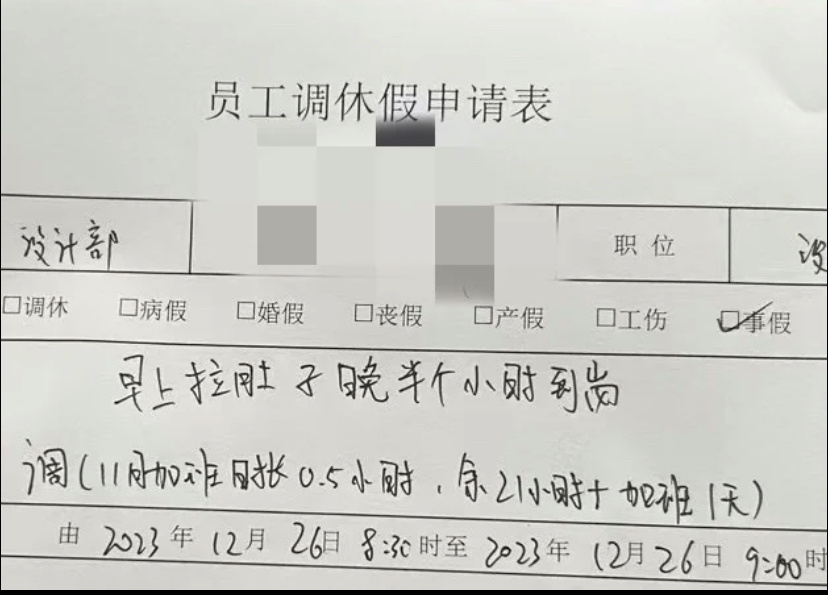 员工调休假申请表
设计部 职位 设
□调休 □病假 □婚假 □丧假 □产假 □工伤 ☑事假
早上拉肚子晚半个小时到岗
调(11月加班时长0.5小时,余21小时+加班1天)
由 2023年 12月 26日 8:30时至 2023年 12月 26日 9:00时